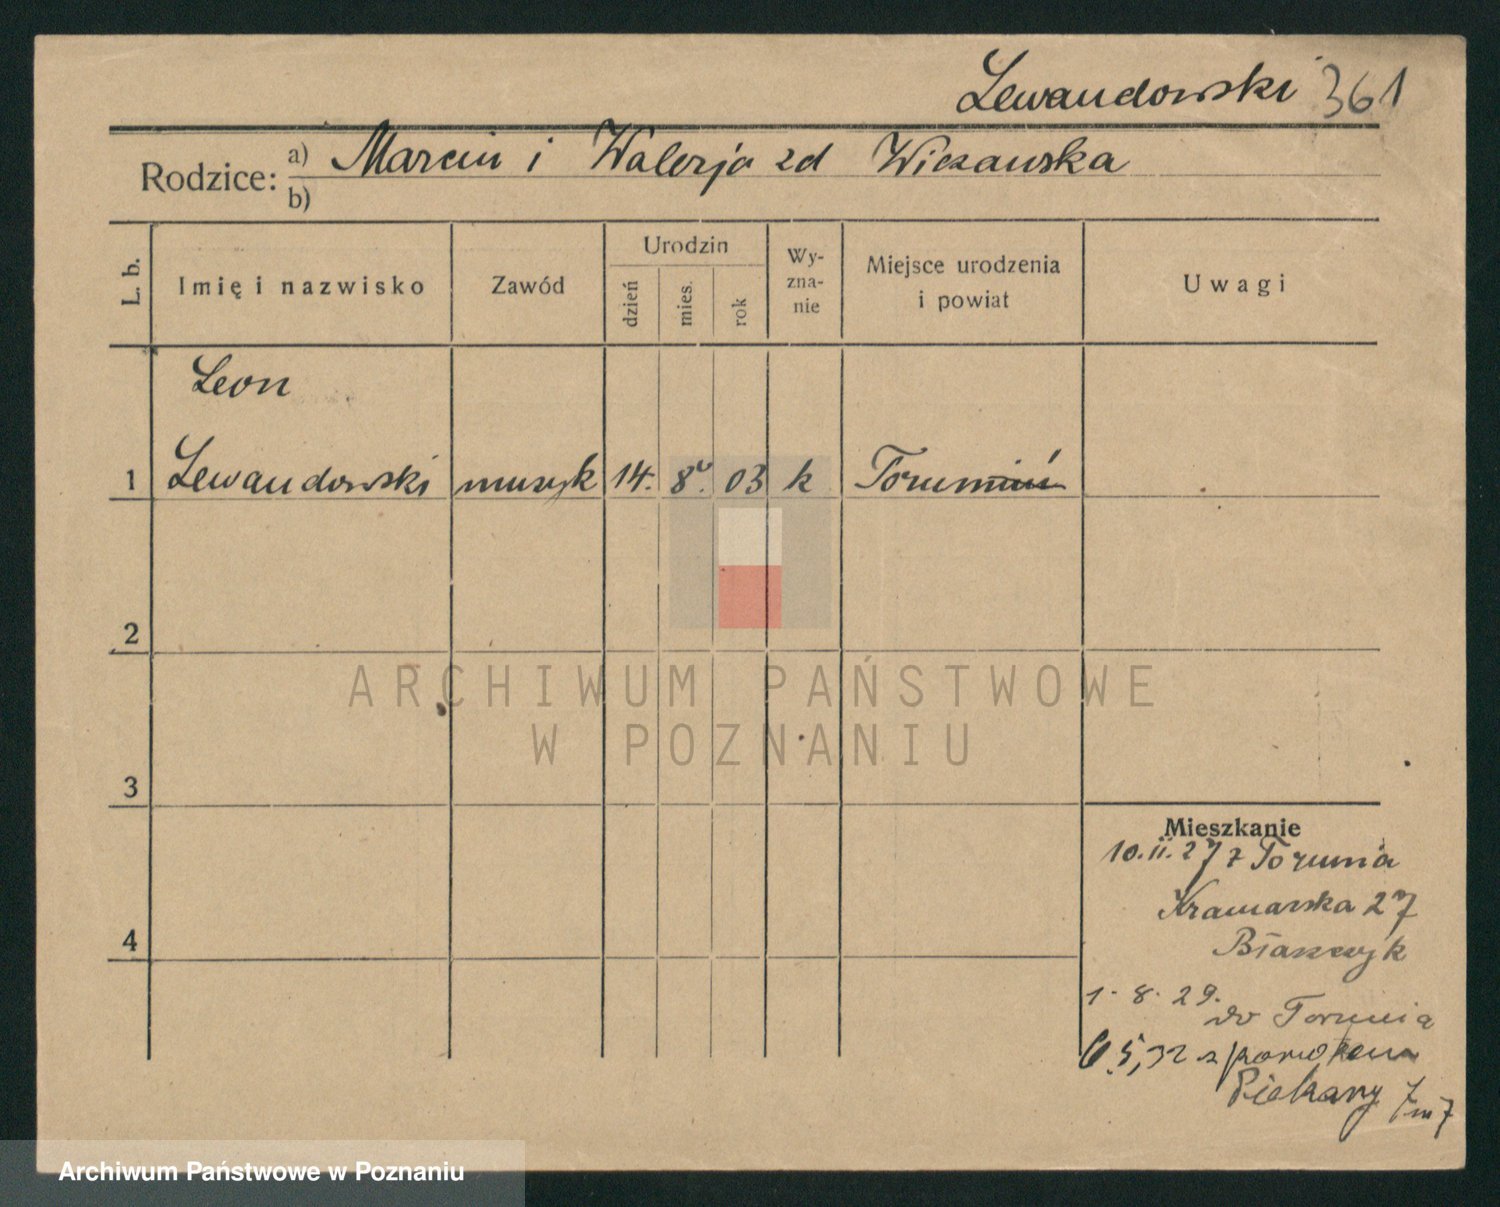 Lewandowski 361
Rodzice: a) Marcin i Walerja zd Wiczawska
b)
L. b.
Imię i nazwisko
Zawód
Urodzin
dzień
mies.
rok
Wy-
zna-
nie
Miejsce urodzenia
i powiat
Uwagi
Leon
1 Lewandowski muzyk 14. 8. 03 k Toruń
2
ARCHIWUM PAŃSTWOWE
W POZNANIU
3
Mieszkanie
10.II.27 z Torunia
Kramarska 27
Błaszczyk
4
1. 8. 29.
do Torunia
6.5,32 z powrotem
Piekary 7 m 7
Archiwum Państwowe w Poznaniu